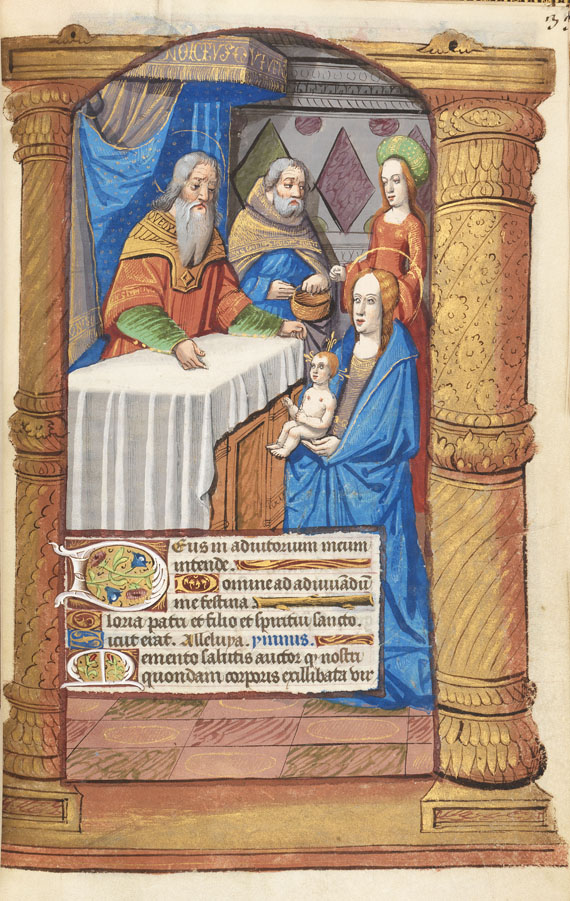 Deus in adiutorium meum
intende.
Domine ad adiuuādū
me festina
Gloria patri et filio et spiritui sancto.
Sicut erat. Alleluya. ymnus.
Memento salutis auctor qɜ nostri
quondam corporis ex illibata vir